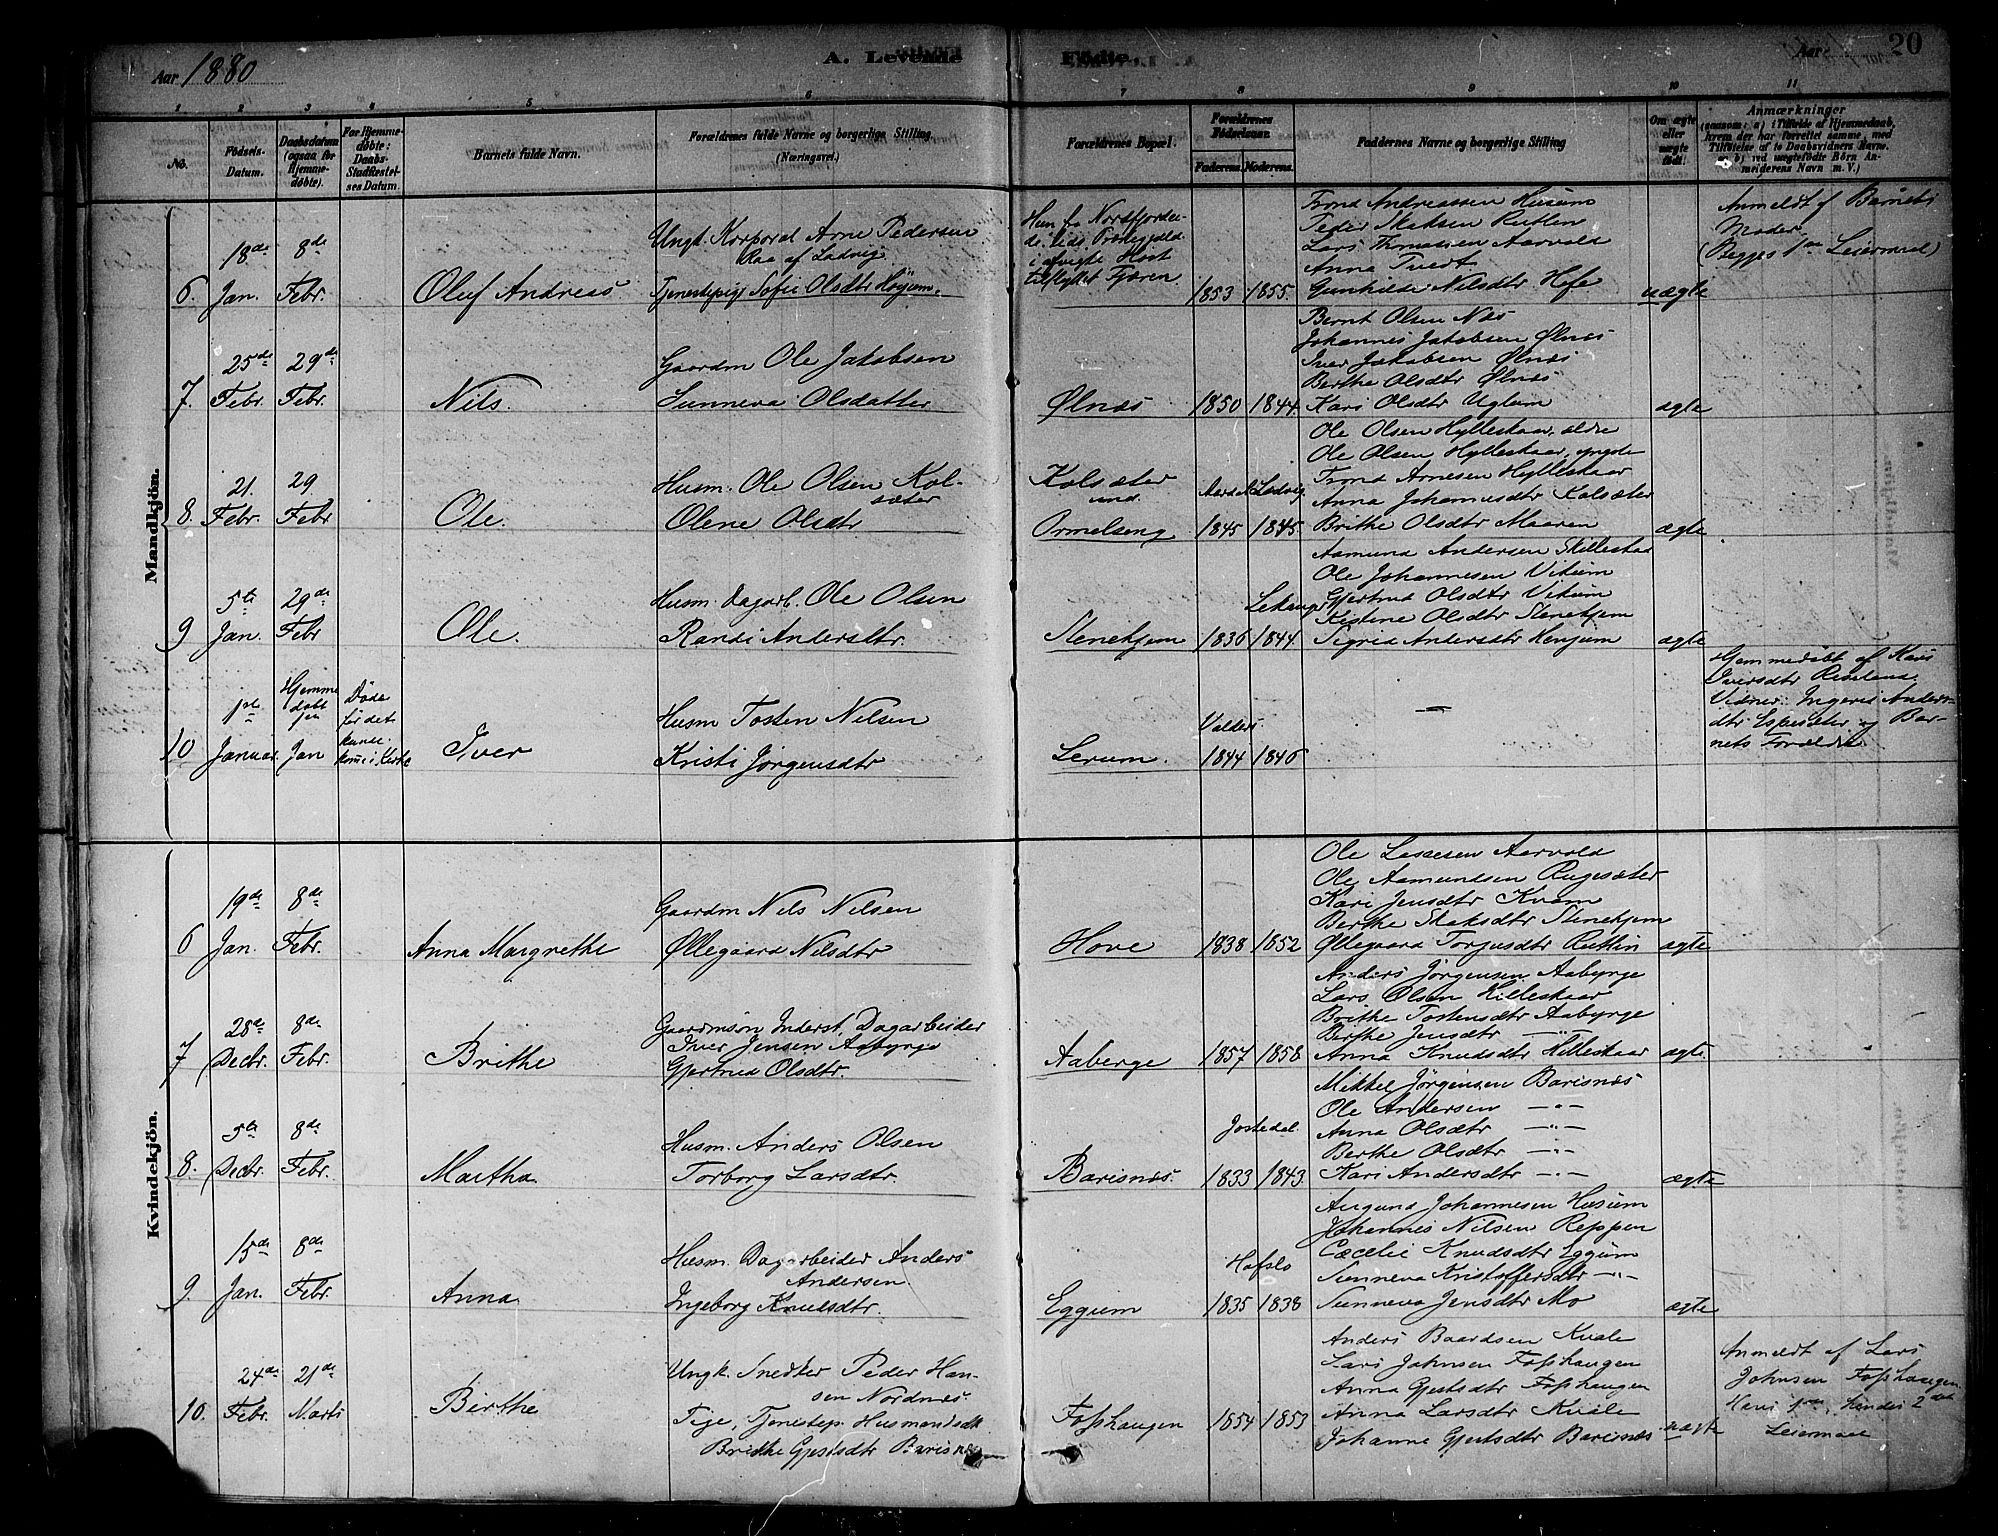 Aar 1880
A. Levende
Födte.
Aar
20
1
2
3
4
5
6
7
8
9
10
11
No.
Fødsels-Datum.
Daabsdatum (ogsaa for Hjemmedøbte).
For Hjemmedøbte: Daabs-Stadfæstelses Datum.
Barnets fulde Navn.
Forældrenes fulde Navne og borgerlige Stilling. (Næringsvei.)
Forældrenes Bopæl.
Forældrenes Fødselsaar.
Faderens.
Moderens.
Faddernes Navne og borgerlige Stilling
Om ægte eller uægte född.
Anmærkninger
(saasom: a) i Tilfælde af Hjemmedaab, hvem der har forrettet samme, med Tilføielse af to Daabsvidners Navne. b) ved uægtefødte Børn Anmelderens Navn m. V.)
Mandkjön.
6. 18de Jan. 8de Febr.
Oluf Andreas
Ungk. Korporal Arne Pedersen
Raa af Ladvig
Tjenestepige Sofie Olsdtr Høyum.
Hun fra Nordfjorde-
i afvigte Høst
tilflyttet Fjæren.
1853 1855.
Trond Andreassen Husum
Peder Skaksen Rutlen
Lars Thomassen Aarvold
Anna Tvedt
Gunhilde Nilsdtr Hefe
uægte
Anmeldt af Barnets
Moder.
(Begges 1ste Leiermaal)
7. 25de Febr. 29de Febr.
Nils.
Gaardm Ole Jakobsen
Sunneva Olsdatter
Ølnæs
1850 1844.
Bernt Olsen Næs
Johannes Jakobsen Ølnæs
Iver Jakobsen Ølnæs
Berthe Olsdtr Ølnæs
Kari Olsdtr Uglum
ægte
8. 21. Febr. 29 Febr
Ole.
Husm. Ole Olsen Kol-
sæter
Olene Olsdtr
Kolsæter
und.
Ormelseng
Ladvig
1845 1845
Ole Olsen Hylleskaar, ældre
Ole Olsen Hylleskaar, yngre
Trond Arnesen Hylleskaar
Anna Johannesdtr Kolsæter
Brithe Olsdtr Maaren
ægte
9 5te Jan. 29de Febr
Ole.
Husm. Dagarb. Ole Olsen
Randi Andersdtr.
Stenehjem
Lekanger
1836 1844
Aamund Andersen Skilleskad
Ole Johannesen Vikum
Gjertrud Olsdtr Vikum
Kistine Olsdtr Stenehjem
Sigrid Andersdtr Henjum
ægte
10 1ste Januar. Hjemme
døbt
Jan
Døde
før det
kunde
komme i Kirke
Iver
Husm Tosten Nilsen
Kristi Jørgensdtr
Lerum.
Valders
1844 1846
—
Hjemmedøbt af Kari
Iversdtr
Vidner: Ingerid Anders-
dtr Espesæter og Bar-
nets Forældre
Kvindekjön.
6 19de Jan. 8de Febr.
Anna Margrethe
Gaardm Nils Nilsen
Øllegaard Nilsdtr
Hove
1838 1852
Ole Lassesen Aarvold
Ole Aamundsen Rugesæter
Kari Jensdtr Kvam
Berthe Skaksdtr Stenehjem
Øllegaard Torjusdtr Rutlin
ægte
7 28de Decbr. 8de Febr.
Brithe
Gaardmsøn Inderst, Dagarbeider
Iver Jensen Aabyrge
Gjertrud Olsdtr.
Aaberge
1857 1858.
Anders Jørgensen Aabyrge
Lars Olsen Hilleskaar
Brithe Tostensdtr Aabyrge
Birthe Jensdtr —"—
Anna Knudsdtr Hilleskaar
ægte.
8. 5te Decbr. 8de Febr.
Martha
Husm. Anders Olsen
Torborg Larsdtr.
Barisnæs.
Jostedal.
1833 1843.
Mikkel Jørgensen Barisnæs
Ole Andersen —"—
Anna Olsdtr —"—
Berthe Olsdtr —"—
Kari Andersdtr —"—
ægte
9. 15de Jan. 8de Febr.
Anna
Husm. Dagarbeider Anders
Andersen
Ingeborg Knudsdtr.
Eggum
Hafslo
1835 1838
Augund Johannesen Husum
Johannes Nilsen Reppen
Cæcelie Knudsdtr Eggum
Sunneva Kristoffersdtr —"—
Sunneva Jensdtr Mo
ægte
10. 24de Febr. 21de Marts
Birthe
Ungk. Snedker Peder Han-
sen Nordnæs
Pige, Tjenestep. Husmandsdtr
Brithe Gjertsdtr Barisnæs
Fosshaugen
1854 1853
Anders Baardsen Kvale
Lars Johnsen Fosshaugen
Anna Gjertsdtr Fosshaugen
Anna Larsdtr Kvale
Johanne Gjertsdtr Barisnæs
uægte
Anmeldt af Lars
Johnsen Fosshaugen
Hans 1ste, hendes 2det
Leiermaal